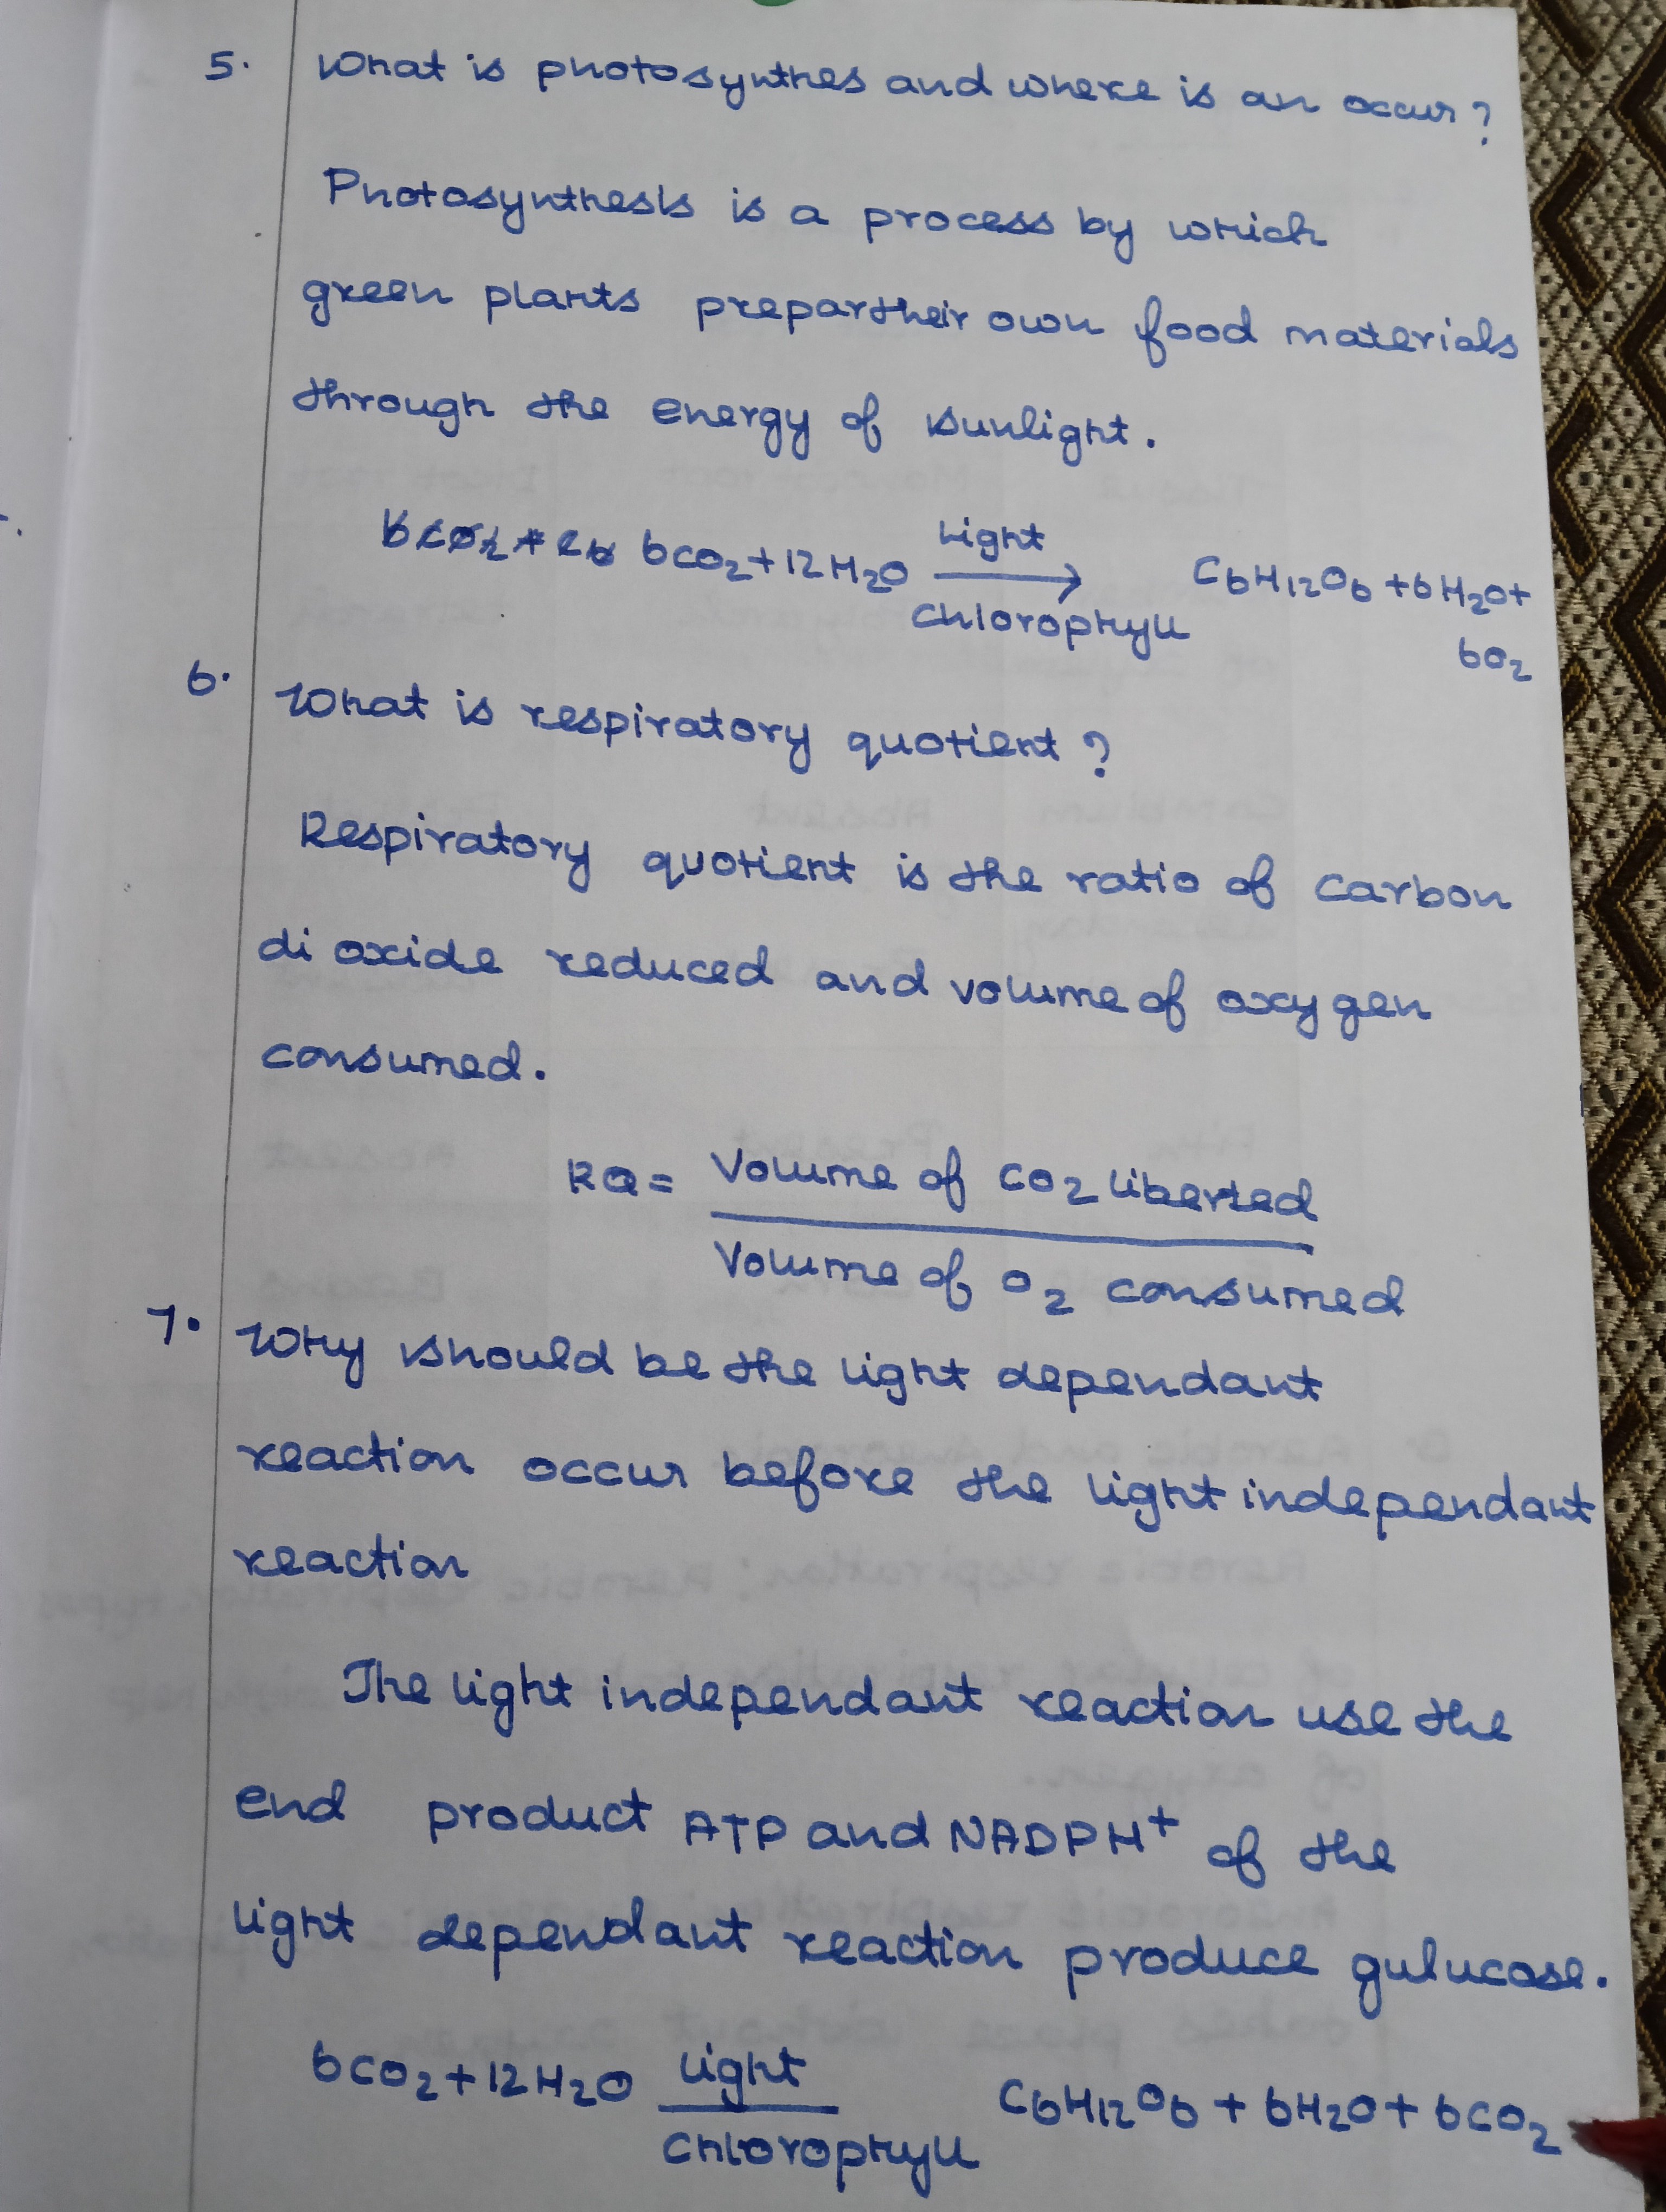 5. What is photosynthes and where is an occur?
Photosynthesis is a process by which
green plants prepar their own food materials
through the energy of sunlight.
6CO2 + 12H2O Light C6H12O6 + 6H2O +
Chlorophyll
6O2
6. What is respiratory quotient?
Respiratory quotient is the ratio of carbon
di oxide reduced and volume of oxygen
consumed.
RQ = Volume of CO2 liberted
Volume of O2 consumed
7. Why should be the light dependant
reaction occur before the light independant
reaction
The light independant reaction use the
end product ATP and NADPH+ of the
light dependant reaction produce gulucose.
6CO2 + 12H2O light C6H12O6 + 6H2O + 6CO2
Chlorophyll